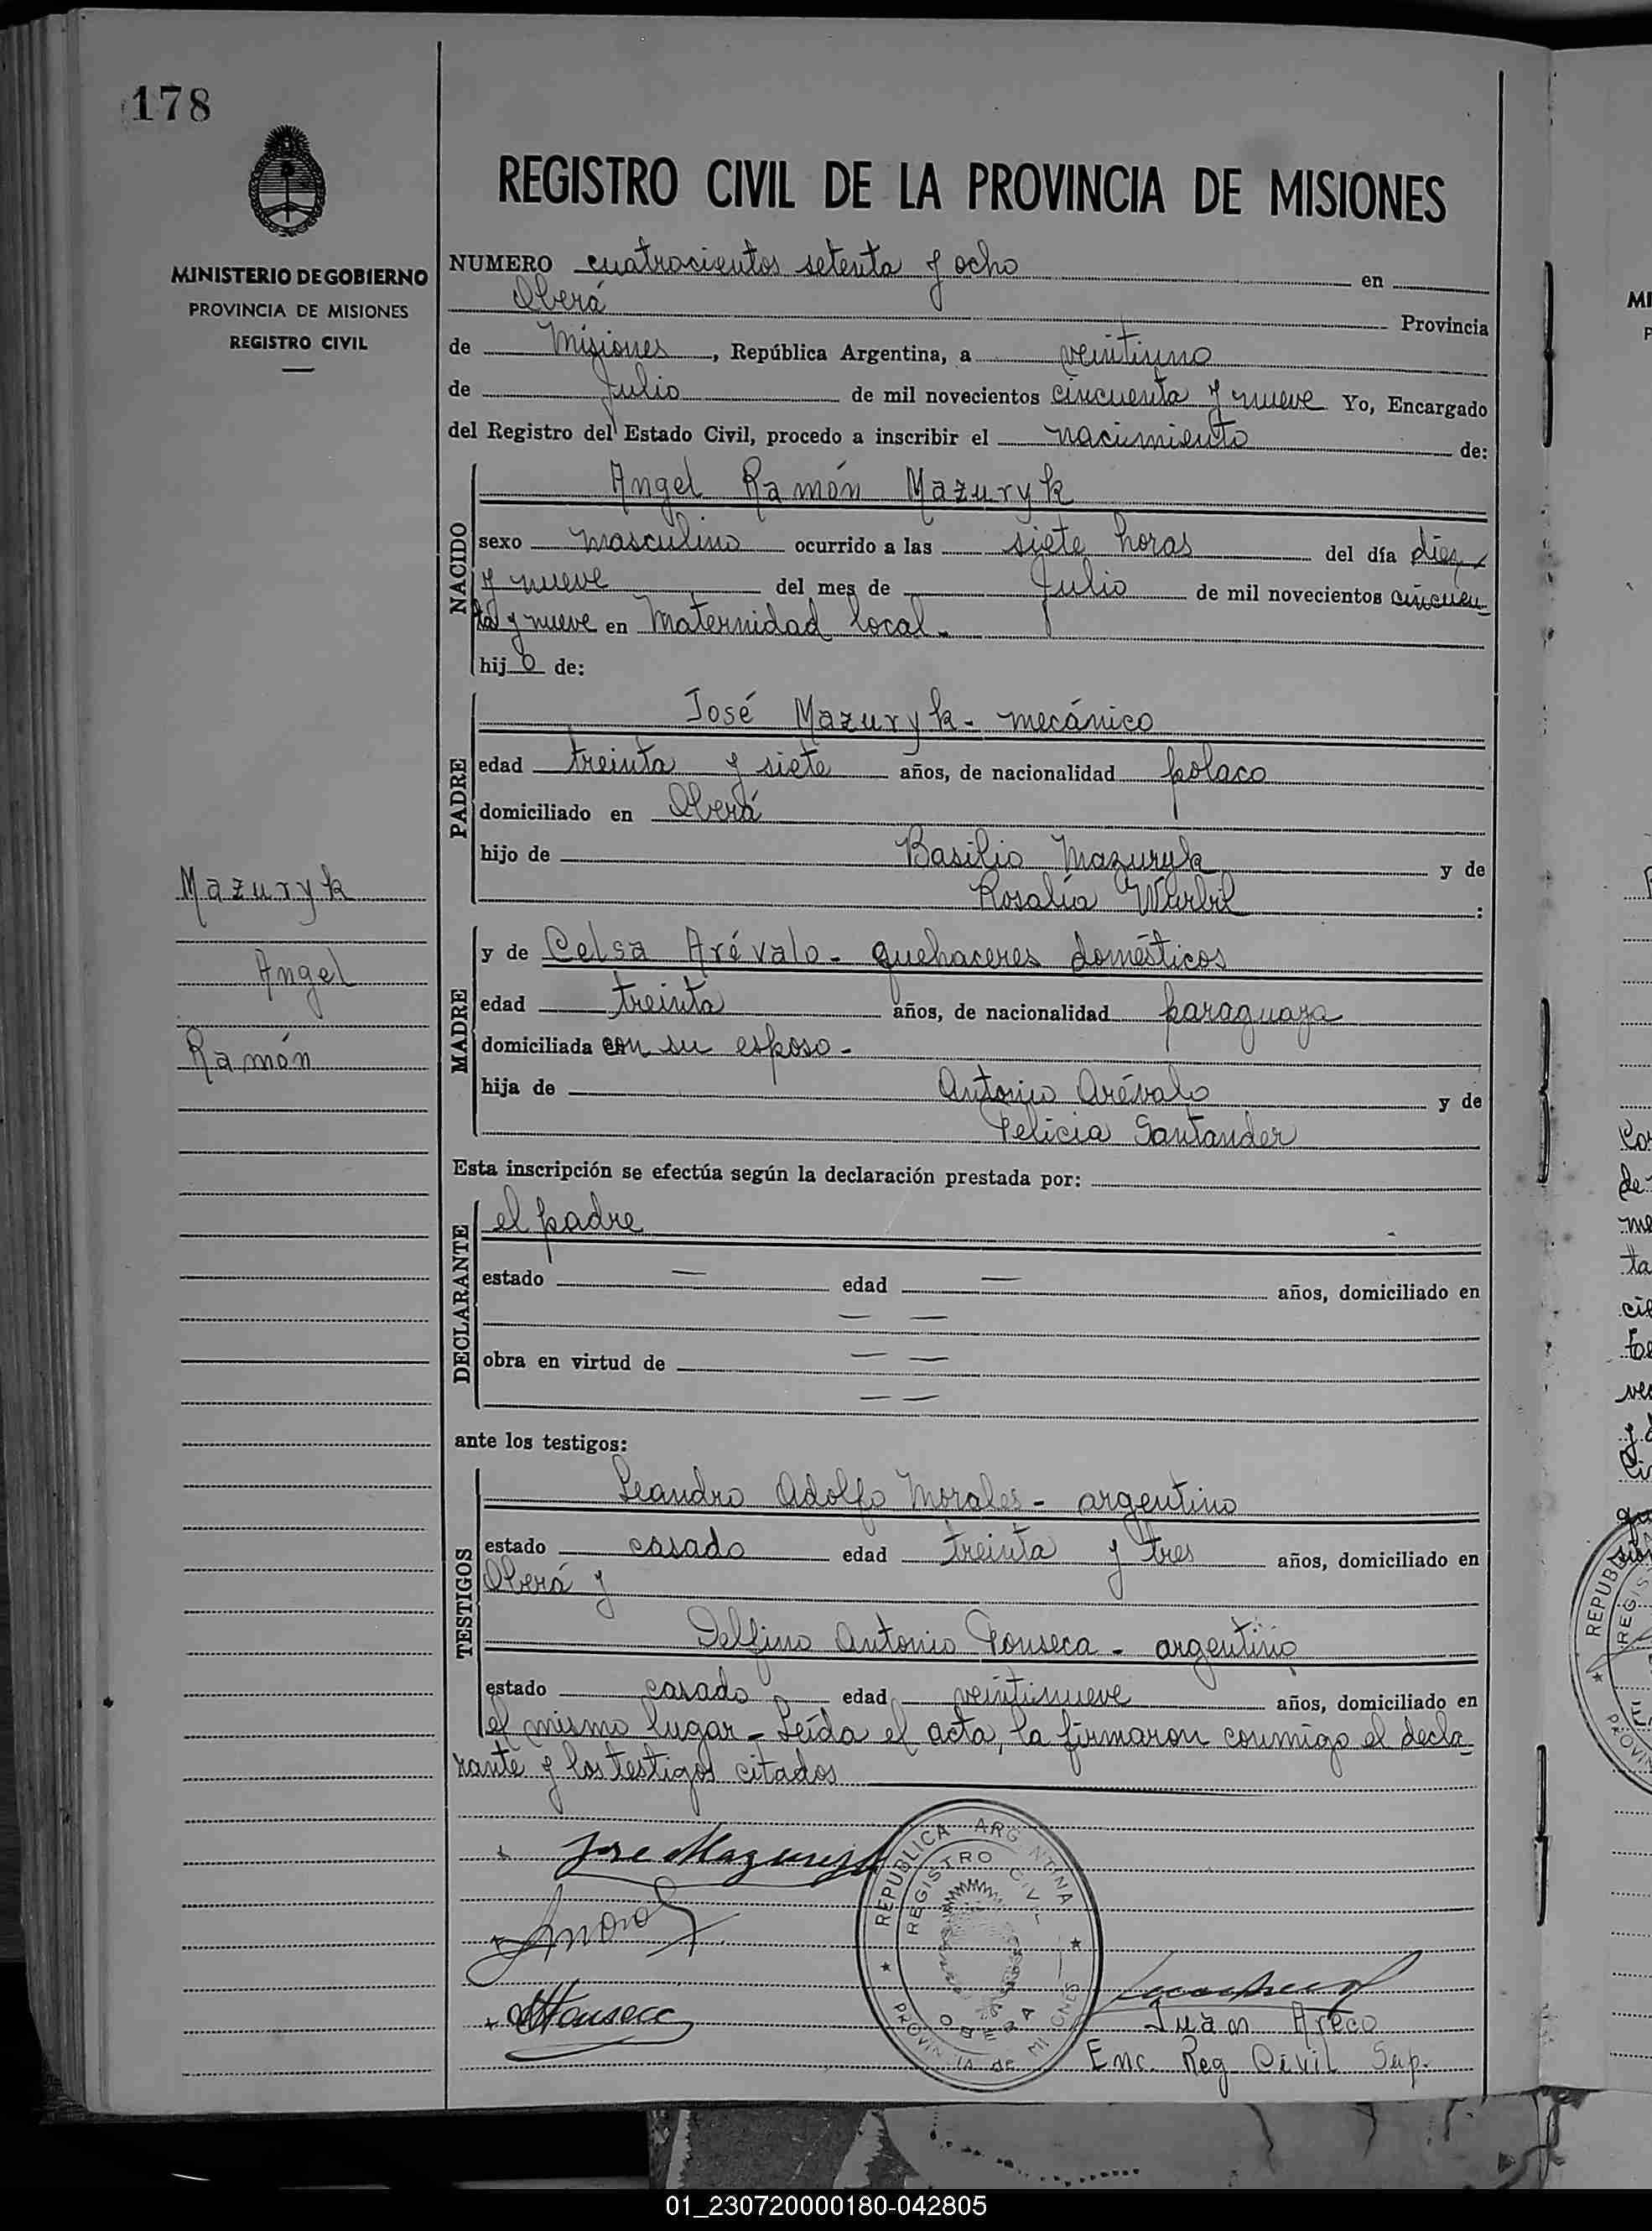 178
REGISTRO CIVIL DE LA PROVINCIA DE MISIONES
MINISTERIO DE GOBIERNO
PROVINCIA DE MISIONES
REGISTRO CIVIL
NUMERO cuatrocientos setenta y ocho en
Oberá Provincia
de Misiones, República Argentina, a veintiuno
de Julio de mil novecientos cincuenta y nueve Yo, Encargado
del Registro del Estado Civil, procedo a inscribir el nacimiento de:
NACIDO
Angel Ramón Mazuryk
sexo masculino ocurrido a las siete horas del día diez
y nueve del mes de Julio de mil novecientos cincuen-
ta y nueve en Maternidad local.
hijo de:
PADRE
José Mazuryk - mecánico
edad treinta y siete años, de nacionalidad polaco
domiciliado en Oberá
hijo de Basilio Mazuryk y de
Rosalía :
Mazuryk
Angel
Ramón
MADRE
y de Celsa Arévalo - quehaceres domésticos
edad treinta años, de nacionalidad paraguaya
domiciliada con su esposo -
hija de Antonio Arévalo y de
Felicia Santander
Esta inscripción se efectúa según la declaración prestada por:
DECLARANTE
el padre
estado — edad — años, domiciliado en
— —
obra en virtud de — —
— —
ante los testigos:
TESTIGOS
Leandro Adolfo Morales - argentino
estado casado edad treinta y tres años, domiciliado en
Oberá y
Delfino Antonio Fonseca - argentino
estado casado edad veintinueve años, domiciliado en
el mismo lugar - Leída el acta, la firmaron conmigo el decla-
rante y los testigos citados
Jose Mazuryk
Fonseca
REPUBLICA ARGENTINA
REGISTRO CIVIL
OBERA
PROVINCIA de MISIONES
Juan Areco
Enc. Reg Civil Sup.
01_230720000180-042805